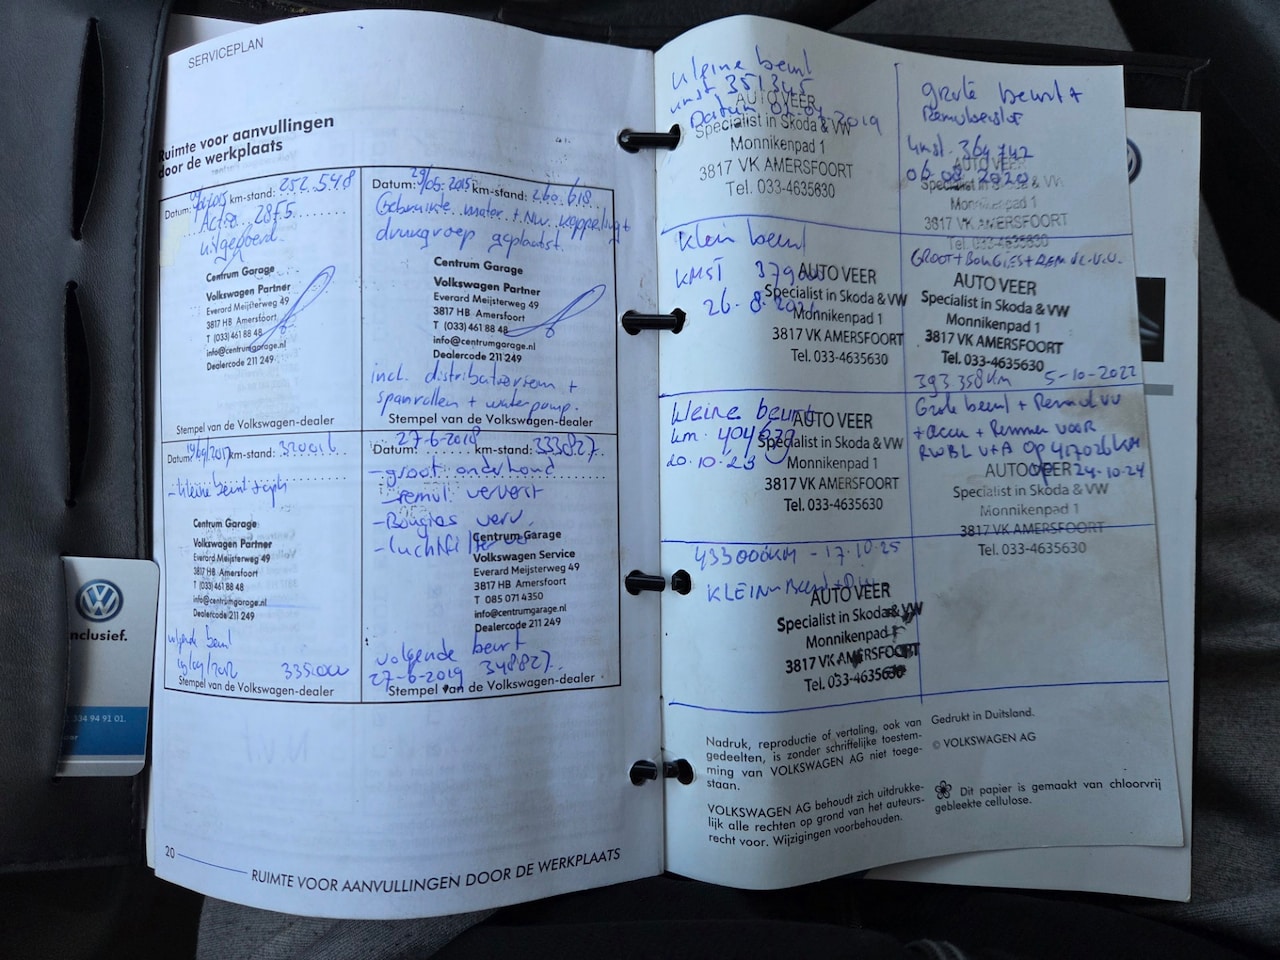 SERVICEPLAN
Ruimte voor aanvullingen
door de werkplaats
Datum: km-stand: 252.548
Actie 28F5
uitgevoerd.
Centrum Garage
Volkswagen Partner
Everard Meijsterweg 49
3817 HB Amersfoort
T (033) 461 88 48
info@centrumgarage.nl
Dealercode 211 249
Stempel van de Volkswagen-dealer
Datum: 29/05.2015 km-stand: 260.618
Gebruikte + NW koppeling +
drukgroep geplaatst
Centrum Garage
Volkswagen Partner
Everard Meijsterweg 49
3817 HB Amersfoort
T (033) 461 88 48
info@centrumgarage.nl
Dealercode 211 249
incl. distributieriem +
spanrollen + waterpomp.
Stempel van de Volkswagen-dealer
Datum: km-stand:
- kleine beurt +
Centrum Garage
Volkswagen Partner
Everard Meijsterweg 49
3817 HB Amersfoort
T (033) 461 88 48
info@centrumgarage.nl
Dealercode 211 249
beurt
335.000
Stempel van de Volkswagen-dealer
27-6-2018 333827.
- groot onderhoud
- remvl. ververst
- Bougies verv.
- luchtfilter
Centrum Garage
Volkswagen Service
Everard Meijsterweg 49
3817 HB Amersfoort
T 085 071 4350
info@centrumgarage.nl
Dealercode 211 249
volgende beurt
27-6-2019 348827.
Stempel van de Volkswagen-dealer
20
RUIMTE VOOR AANVULLINGEN DOOR DE WERKPLAATS
nclusief.
334 94 91 01.
beurt
kmst 351345
Datum 2019
AUTO VEER
Specialist in Skoda & VW
Monnikenpad 1
3817 VK AMERSFOORT
Tel. 033-4635630
grote beurt +
Remvloeistof
kmst. 364742
06.08.2020
AUTO VEER
Specialist in Skoda & VW
Monnikenpad 1
3817 VK AMERSFOORT
Tel. 033-4635630
Klein beurt
KMST 379
26-8-2021
AUTO VEER
Specialist in Skoda & VW
Monnikenpad 1
3817 VK AMERSFOORT
Tel. 033-4635630
GROOT + BOUGIES + REM
AUTO VEER
Specialist in Skoda & VW
Monnikenpad 1
3817 VK AMERSFOORT
Tel. 033-4635630
393.358KM 5-10-2022
kleine beurt
km. 404
20.10.23
AUTO VEER
Specialist in Skoda & VW
Monnikenpad 1
3817 VK AMERSFOORT
Tel. 033-4635630
Grote beurt +
+ accu + Remmen voor
RWBL V+A op 417026 KM
24-10-24
AUTO VEER
Specialist in Skoda & VW
Monnikenpad 1
3817 VK AMERSFOORT
Tel. 033-4635630
433000KM - 17.10.25
KLEINE Beurt +
AUTO VEER
Specialist in Skoda & VW
Monnikenpad 1
3817 VK AMERSFOORT
Tel. 033-4635630
Nadruk, reproductie of vertaling, ook van
gedeelten, is zonder schriftelijke toestem-
ming van VOLKSWAGEN AG niet toege-
staan.
VOLKSWAGEN AG behoudt zich uitdrukke-
lijk alle rechten op grond van het auteurs-
recht voor. Wijzigingen voorbehouden.
Gedrukt in Duitsland.
© VOLKSWAGEN AG
Dit papier is gemaakt van chloorvrij
gebleekte cellulose.